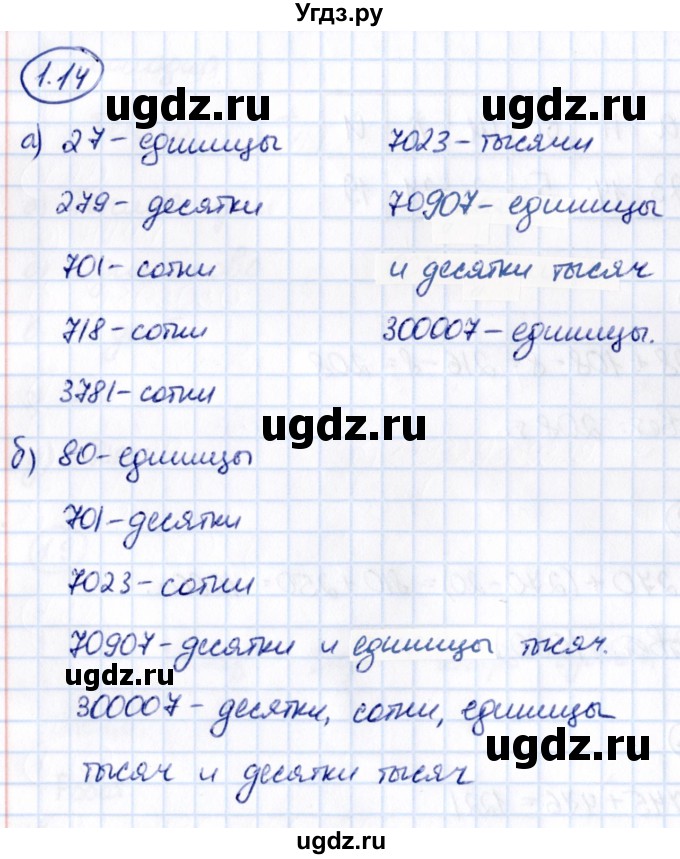 Угдз.ру
1.14
ugdz.ru
ugdz.ru
а) 27 – единицы
279 – десятки
701 – сотни
718 – сотни
3781 – сотни
7023 – тысячи
70907 – единицы
и десятки тысяч
300007 – единицы.
ugdz.ru
б) 80 – единицы
701 – десятки
7023 – сотни
70907 – десятки и единицы тысяч.
ugdz.ru
300007 – десятки, сотни, единицы
тысяч и десятки тысяч
ugdz.ru
ugdz.ru